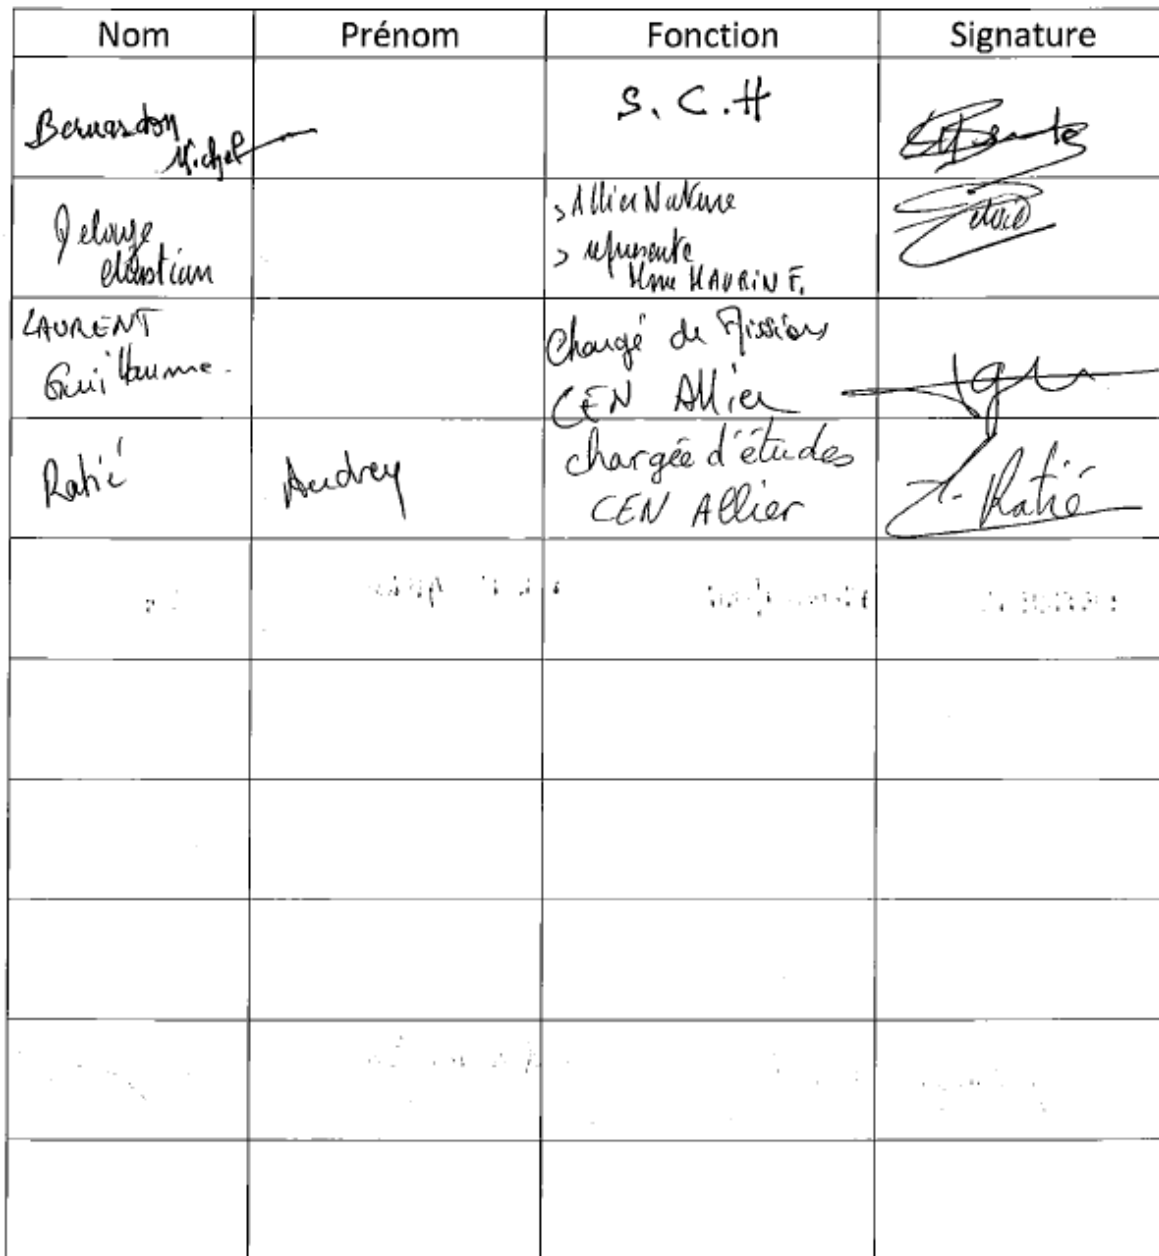 Nom Prénom Fonction Signature
Bernardon
Michel
S. C. H
Deloge
> Allier Nature
> représente
Mme MAURIN F.
LAURENT
Guillaume.
Chargé de Missions
CEN Allier
Ratié
Audrey
chargée d'études
CEN Allier
A. Ratié